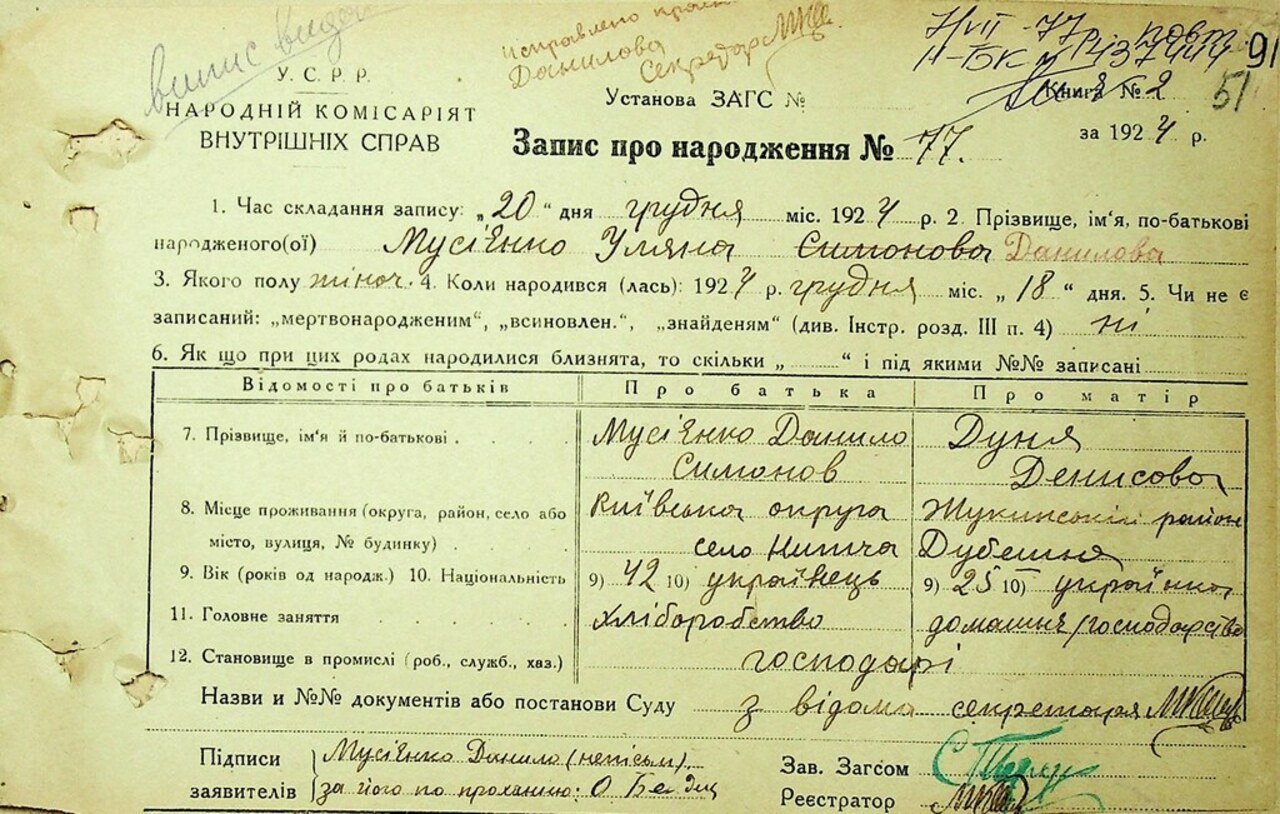 випис видан
исправлено
Данилова
Секретар
7/VII-77р. повт.
II-БК № 437444
91
У. С. Р. Р.
НАРОДНІЙ КОМІСАРІЯТ
ВНУТРІШНІХ СПРАВ
Установа ЗАГС №
Книга № 2
51
за 1924 р.
Запис про народження № 77.
1. Час складання запису: „20“ дня грудня міс. 1924 р. 2. Прізвище, ім'я, по-батькові
народженого(ої) Мусієнко Уляна Симонова Данилова
3. Якого полу жіноч. 4. Коли народився (лась): 1924 р. грудня міс. „18“ дня. 5. Чи не є
записаний: „мертвонародженим“, „всиновлен.“, „знайденям“ (див. Інстр. розд. III п. 4) ні
6. Як що при цих родах народилися близнята, то скільки „ “ і під якими №№ записані
Відомості про батьків Про батька Про матір
7. Прізвище, ім'я й по-батькові Мусієнко Данило Дуня
Симонов Денисова
8. Місце проживання (округа, район, село або Київська округа Жукинський район
місто, вулиця, № будинку) село Нижча Дубешня
9. Вік (років од народж.) 10. Національність 9) 42 10) українець 9) 25 10) українка
11. Головне заняття хліборобство домашнє господарство
12. Становище в промислі (роб., служб., хаз.) господарі
Назви и №№ документів або постанови Суду з відома секретаря
Підписи Мусієнко Данило (неписьм)
заявителів за його по проханню: О
Зав. Загсом
Реєстратор